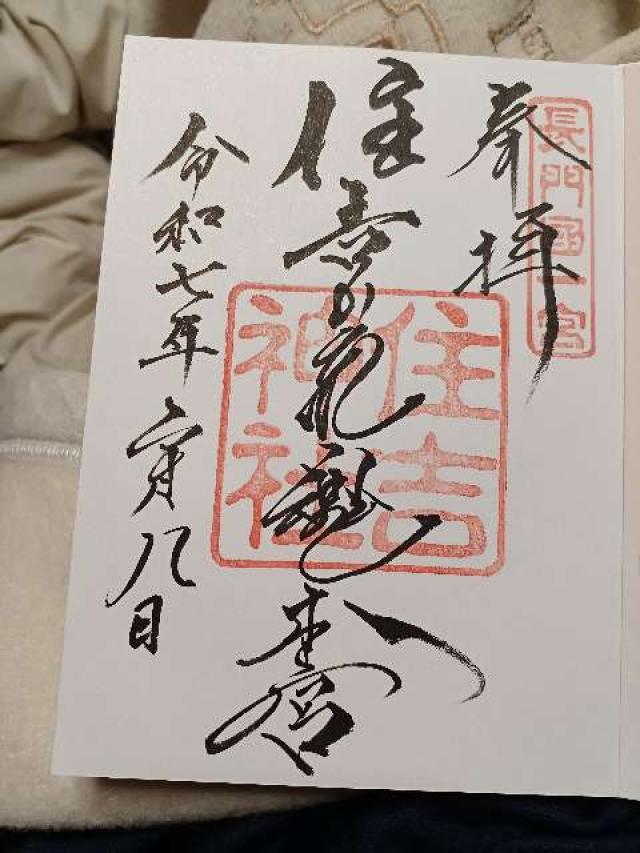 長門國一宮
奉拝
住吉荒魂本宮
住吉
神社
令和七年 月八日